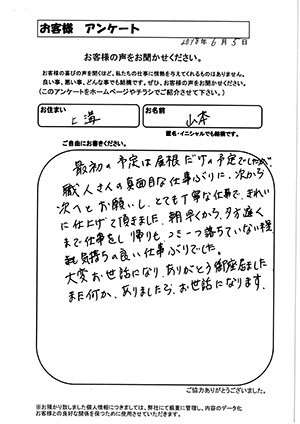 お客様 アンケート
2018年6月5日
お客様の声をお聞かせください。
お客様の喜びの声を聞くほど、私たちの仕事に情熱を与えてくれるものはありません。
良い事、悪い事、どんな事でも結構です。ぜひ、お客様の声をお聞かせください。
(このアンケートをホームページやチラシでご紹介させて下さい。)
お住まい
上溝
お名前
山本
匿名・イニシャルでも結構です。
ご自由にお書きください。
最初の予定は屋根だけの予定でしたが
職人さんの真面目な仕事ぶりに、次から
次へとお願いし、とても丁寧な仕事で、きれい
に仕上げて頂きました。朝早くから、夕方遅く
まで仕事をし帰りも、ゴミ一つ落ちていない程
気持ちの良い仕事ぶりでした。
大変お世話になり、ありがとう御座居ました
また何か、ありましたら、お世話になります。
ご協力ありがとうございました。
※お預かり致しました個人情報につきましては、弊社にて厳重に管理し、内容のデータ化
お客様との良好な関係を保つために使用させていただきます。